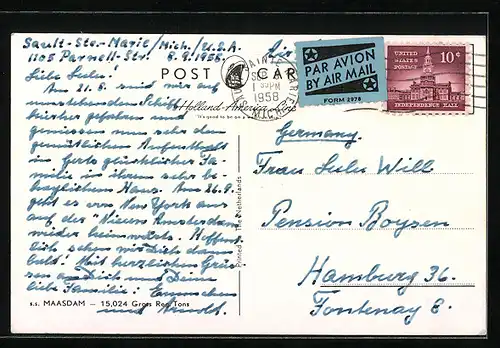 Sault-Ste-Marie/Mich./U.S.A.
1105 Parnell-Str. 8.9.1958.
Liebe Lulu!
Am 21.8. sind wir auf
umstehendem Schiff
hierher gefahren und
geniessen nun sehr den
gemütlichen Aufenthalt
in Gerts glücklicher Fa-
milie in ihrem sehr be-
haglichen Haus. Am 26.9.
geht es von New York aus
auf der "Nieuw Amsterdam"
wieder heimwärts. Hoffent-
lich sehen wir Dich dann
bald! Mit herzlichen Grüs-
sen an Dich und Deine
liebe Familie:
und Arnold.
s.s. MAASDAM — 15,024 Gross Reg. Tons
POST CARD
Holland-America Line
"It's good to be on a
Printed in The Netherlands
SAINTE MARIE
MICH
SEP
PM
1958
PAR AVION
BY AIR MAIL
FORM 2978
UNITED
STATES
POSTAGE
10¢
INDEPENDENCE HALL
Germany.
Frau Lulu Will
Pension Boysen
Hamburg 36.
Fontenay 8.